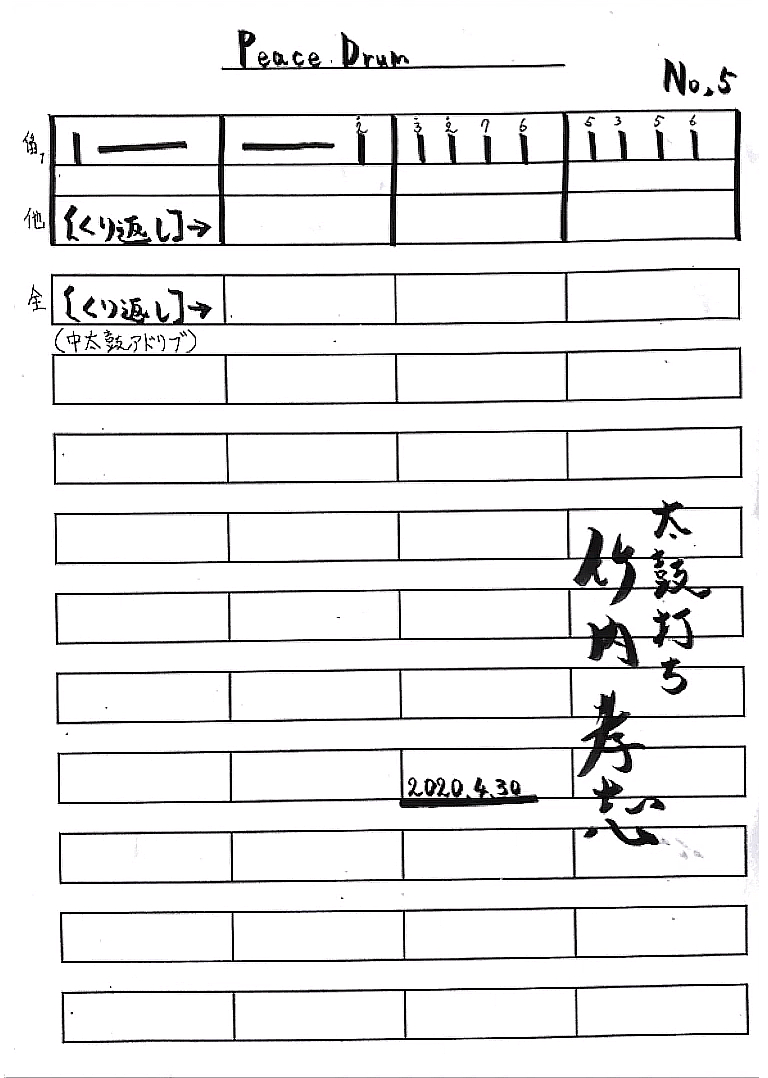 Peace Drum
No.5
2̇ 3̇ 2̇ 7 6 5 3 5 6
他 [くり返し]→
全 [くり返し]→
(中太鼓アドリブ)
太鼓打ち
竹内孝志
2020.4.30